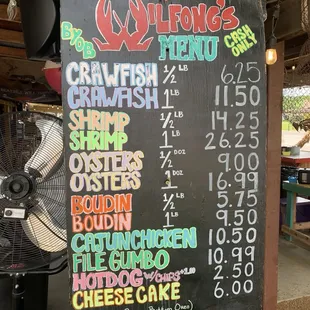 WILFONG'S
BYOB MENU CASH ONLY
CRAWFISH 1/2 LB 6.25
CRAWFISH 1 LB 11.50
SHRIMP 1/2 LB 14.25
SHRIMP 1 LB 26.25
OYSTERS 1/2 DOZ 9.00
OYSTERS 1 DOZ 16.99
BOUDIN 1/2 LB 5.75
BOUDIN 1 LB 9.50
CAJUN CHICKEN 10.50
FILE GUMBO 10.99
HOTDOG W/CHIPS +1.00 2.50
CHEESE CAKE 6.00